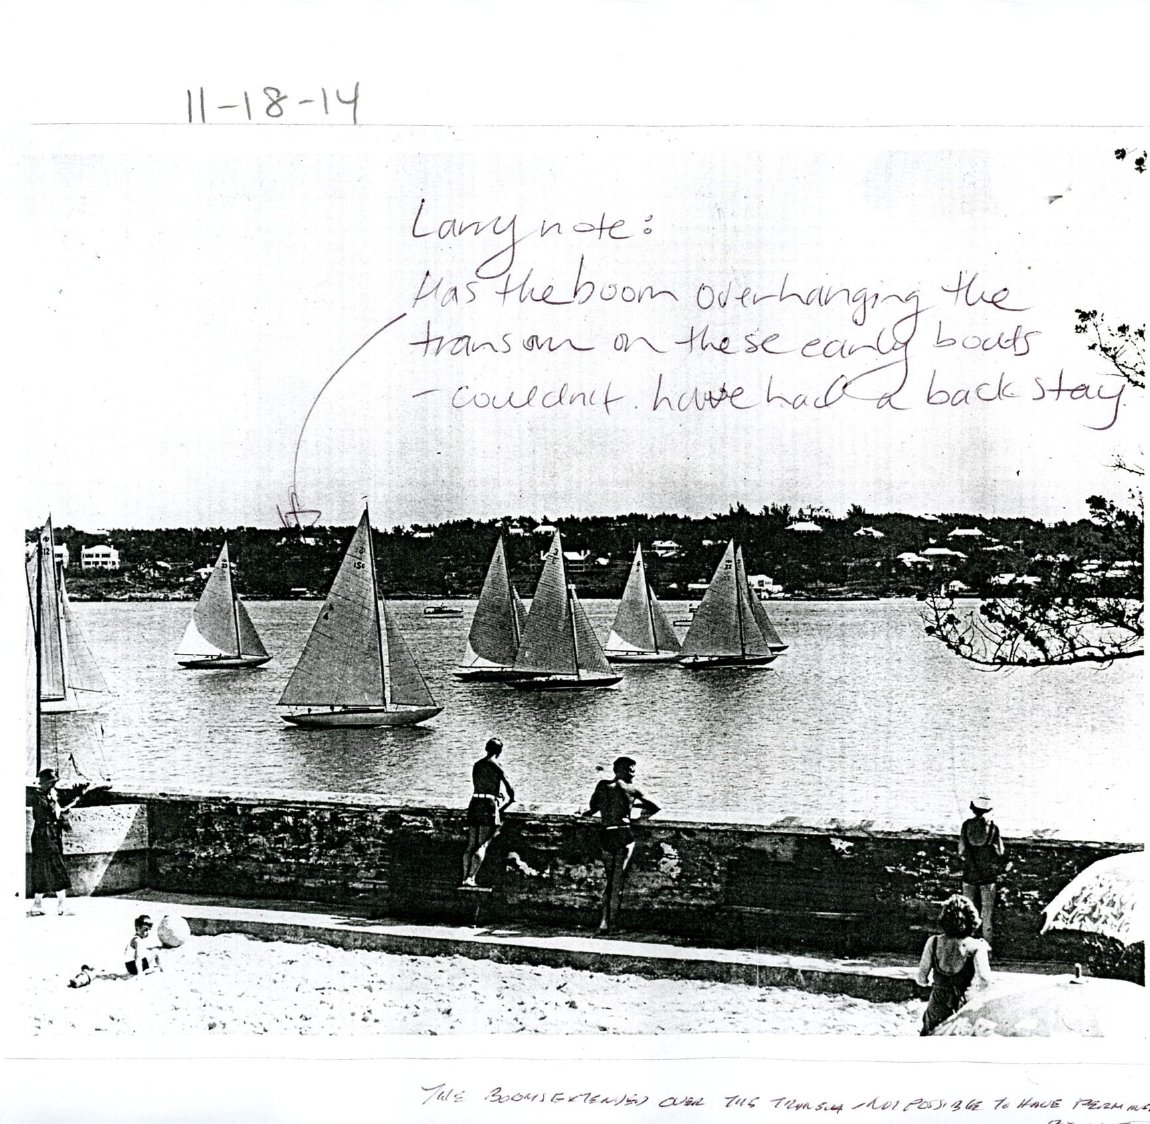 11-18-14
Larry note:
Has the boom overhanging the
transom on these early boats
- couldnt have had a back stay
THE BOOMS EXTENDED OVER THE TRANSOM - NOT POSSIBLE TO HAVE PERMANE